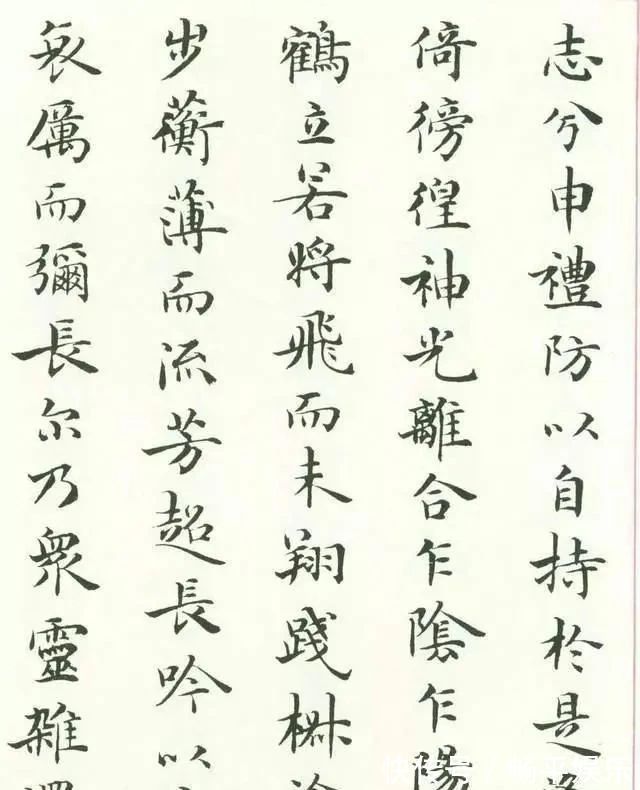 志兮申禮防以自持於是
倚徬徨神光離合乍陰乍陽
鶴立若將飛而未翔踐椒
步蘅薄而流芳超長吟以
哀厲而彌長尔乃眾靈雜
快传号